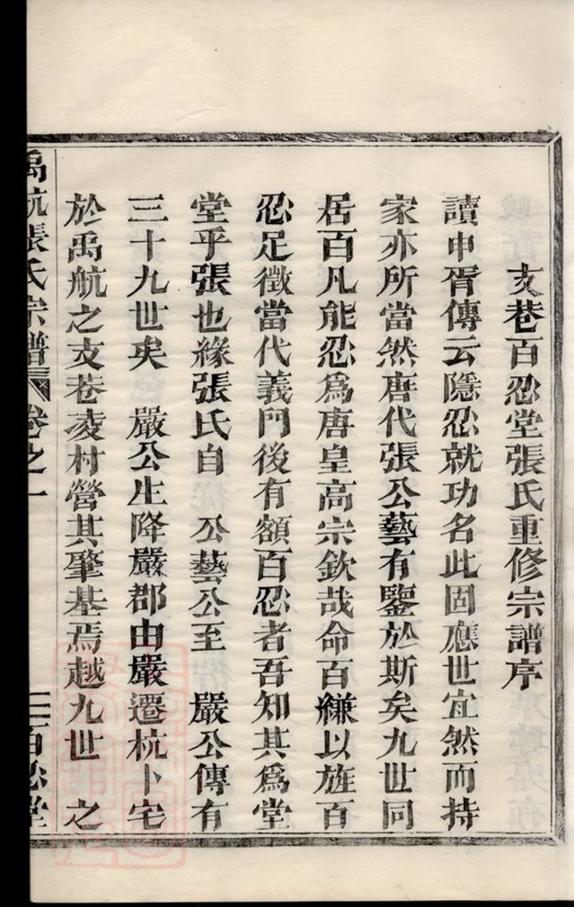 支巷百忍堂張氏重修宗譜序
讀申胥傳云隱忍就功名此固應世宜然而持
家亦所當然唐代張公藝有鑒於斯矣九世同
居百凡能忍爲唐皇高宗欽哉命百縑以旌百
忍足徵當代義門後有額百忍者吾知其爲堂
堂乎張也緣張氏自 公藝公至 嚴公傳有
三十九世矣 嚴公生降嚴郡由嚴遷杭卜宅
於禹航之支巷凌村營其肇基焉越九世 之
禹航張氏宗譜 卷之一 二百忍堂